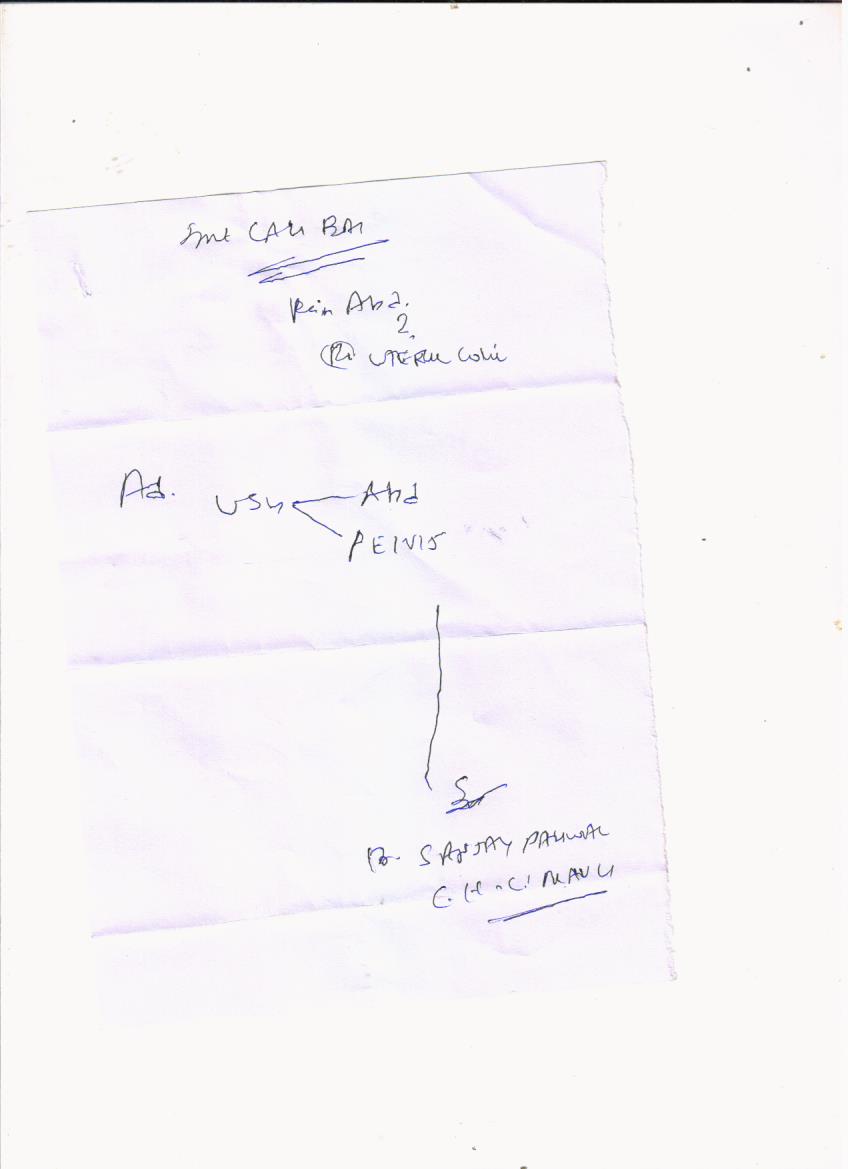 Smt CALI BAI
Pain Abd.
2.
(Rt) UTERIC Colic
Ad. USG Abd
PELVIS
Dr. SANJAY PALIWAL
C.H.C. MAVLI